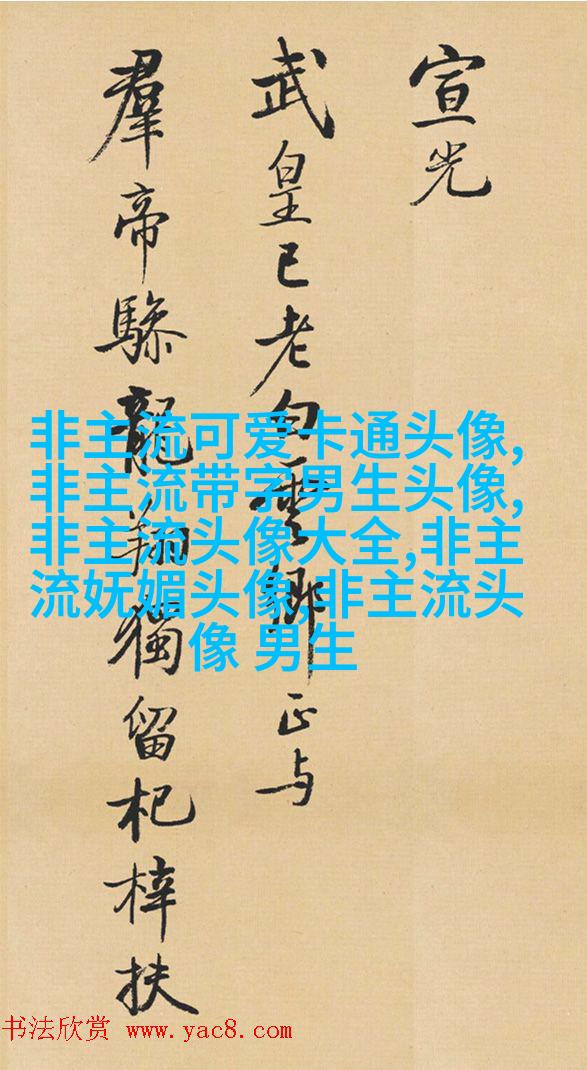 宣光
武皇已老白雲鄉正与
羣帝驂龍翔獨留杞梓扶
非主流可爱卡通头像,
非主流带字男生头像,
非主流头像大全,非主
流妩媚头像,非主流头
像 男生
书法欣赏 www.yac8.com